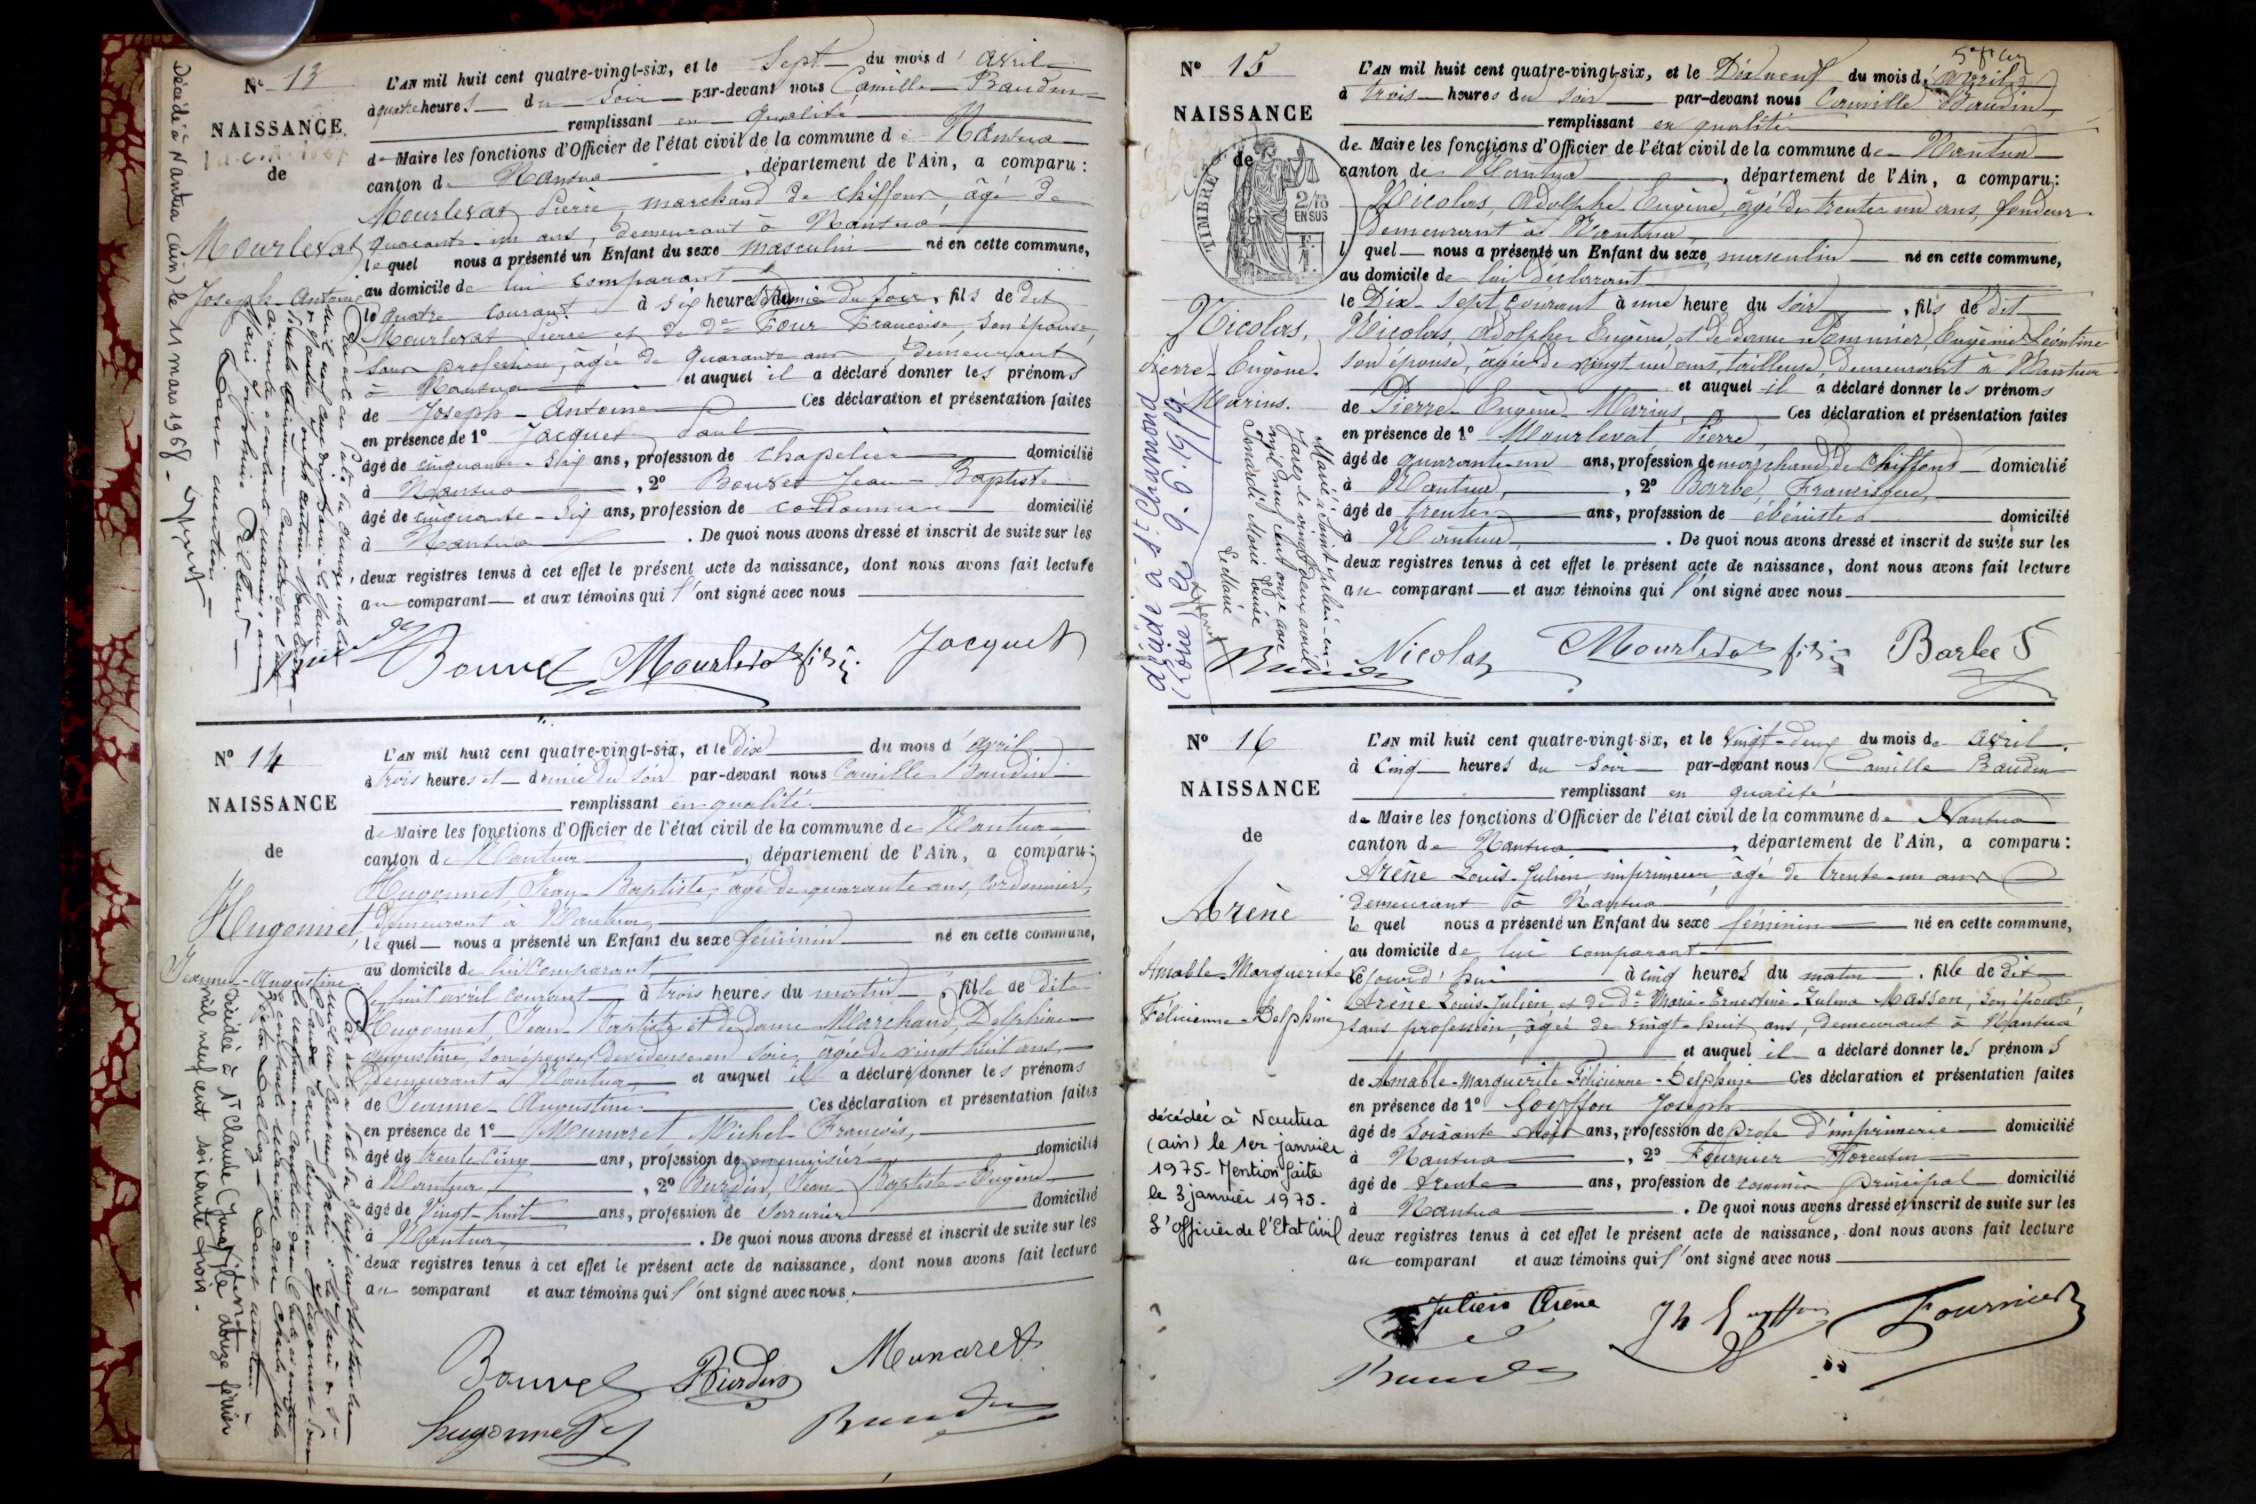 N° 13
NAISSANCE
de
Mourlevat
Joseph-Antoine
L'AN mil huit cent quatre-vingt-six, et le Sept du mois d'avril
à quatre heures du Soir par-devant nous Camille Baudin
remplissant en qualité
de Maire les fonctions d'Officier de l'état civil de la commune de Nantua
canton de Nantua, département de l'Ain, a comparu:
Mourlevat Pierre, marchand de chiffons, âgé de
quarante-un ans, demeurant à Nantua
lequel nous a présenté un Enfant du sexe masculin né en cette commune,
au domicile de lui comparant
le quatre courant à six heures du Soir, fils de dit
Mourlevat Pierre et de de Françoise, son épouse,
sans profession, âgée de quarante ans, demeurant
à Nantua et auquel il a déclaré donner les prénoms
de Joseph-Antoine Ces déclaration et présentation faites
en présence de 1° Jacquet Paul
âgé de cinquante-six ans, profession de chapelier domicilié
à Nantua, 2° Bouvet Jean-Baptiste
âgé de cinquante-six ans, profession de cordonnier domicilié
à Nantua. De quoi nous avons dressé et inscrit de suite sur les
deux registres tenus à cet effet le présent acte de naissance, dont nous avons fait lecture
au comparant et aux témoins qui l'ont signé avec nous
Bouvet Mourlevat fils Jacquet
Décédé à Nantua (ain) le 11 mars 1968 -
N° 14
NAISSANCE
de
Hugonnet
Jeanne-Augustine
L'AN mil huit cent quatre-vingt-six, et le dix du mois d'avril
à trois heures et demie du soir par-devant nous Camille Baudin
remplissant en qualité
de Maire les fonctions d'Officier de l'état civil de la commune de Nantua
canton de Nantua, département de l'Ain, a comparu:
Hugonnet, Jean-Baptiste, âgé de quarante ans, Cordonnier,
demeurant à Nantua,
lequel nous a présenté un Enfant du sexe féminin né en cette commune,
au domicile de lui Comparant
le huit avril courant à trois heures du matin, fille de dit
Hugonnet, Jean-Baptiste et de dame Marchand, Delphine
Augustine, son épouse, dévideuse en soie, âgée de vingt huit ans,
demeurant à Nantua et auquel il a déclaré donner les prénoms
de Jeanne-Augustine Ces déclaration et présentation faites
en présence de 1° Munaret Michel François,
âgé de trente cinq ans, profession de menuisier domicilié
à Nantua, 2° Burdin, Jean-Baptiste-Eugène
âgé de Vingt-huit ans, profession de serrurier domicilié
à Nantua. De quoi nous avons dressé et inscrit de suite sur les
deux registres tenus à cet effet le présent acte de naissance, dont nous avons fait lecture
au comparant et aux témoins qui l'ont signé avec nous.
Bouvet Burdin Munaret
hugonnet Baudin
Décédée à St Claude (Jura) le douze février
mil neuf cent soixante trois.
N° 15
NAISSANCE
de
TIMBRE
2/10
EN SUS
Nicolas,
Pierre-Eugène-
Marius.
L'AN mil huit cent quatre-vingt-six, et le Dix neuf du mois d'avril
à trois heures du soir par-devant nous Camille Baudin,
remplissant en qualité
de Maire les fonctions d'Officier de l'état civil de la commune de Nantua
canton de Nantua, département de l'Ain, a comparu:
Nicolas, Adolphe Eugène, âgé de trente un ans, fondeur
demeurant à Nantua,
lequel nous a présenté un Enfant du sexe masculin né en cette commune,
au domicile de lui déclarant
le Dix-sept courant à une heure du soir, fils de dit
Nicolas, Adolphe Eugène, et de dame Eugénie Léontine
son épouse, âgée de vingt un ans, tailleuse, demeurant à Nantua
et auquel il a déclaré donner les prénoms
de Pierre-Eugène-Marius, Ces déclaration et présentation faites
en présence de 1° Mourlevat, Pierre,
âgé de quarante-un ans, profession de marchand de chiffons domicilié
à Nantua, 2° Barbe, Francisque,
âgé de trente ans, profession de ébéniste domicilié
à Nantua, . De quoi nous avons dressé et inscrit de suite sur les
deux registres tenus à cet effet le présent acte de naissance, dont nous avons fait lecture
au comparant et aux témoins qui l'ont signé avec nous
Baudin Nicolas Mourlevat fils Barbe F
Marié à Saint Julien-en-
Jarez le vingt deux avril
mil neuf cent onze avec
Marie Louise
Le Maire
décédé à St Chamond
(Loire) le 9.6.1959
N° 16
NAISSANCE
de
Arène
Amable-Marguerite
Félicienne-Delphine
L'AN mil huit cent quatre-vingt-six, et le Vingt-deux du mois de avril.
à Cinq heures du Soir par-devant nous Camille Baudin
remplissant en qualité
de Maire les fonctions d'Officier de l'état civil de la commune de Nantua
canton de Nantua, département de l'Ain, a comparu:
Arène Louis-Julien imprimeur âgé de trente-un ans
demeurant à Nantua
lequel nous a présenté un Enfant du sexe féminin né en cette commune,
au domicile de lui comparant
ce jourd'hui à cinq heures du matin, fille de dit
Arène Louis-Julien, et de de Marie-Ernestine-Zulma Masson, son épouse,
sans profession, âgée de vingt-huit ans, demeurant à Nantua
et auquel il a déclaré donner les prénoms
de Amable-Marguerite Félicienne-Delphine Ces déclaration et présentation faites
en présence de 1° Goyffon Joseph
âgé de Soixante ans, profession de prote d'imprimerie domicilié
à Nantua, 2° Fournier Florentin
âgé de trente ans, profession de commis principal domicilié
à Nantua. De quoi nous avons dressé et inscrit de suite sur les
deux registres tenus à cet effet le présent acte de naissance, dont nous avons fait lecture
au comparant et aux témoins qui l'ont signé avec nous
Julien Arène Jh Goyffon Fournier
Baudin
décédée à Nantua
(ain) le 1er janvier
1975 - Mention faite
le 3 janvier 1975 -
L'Officier de l'Etat Civil